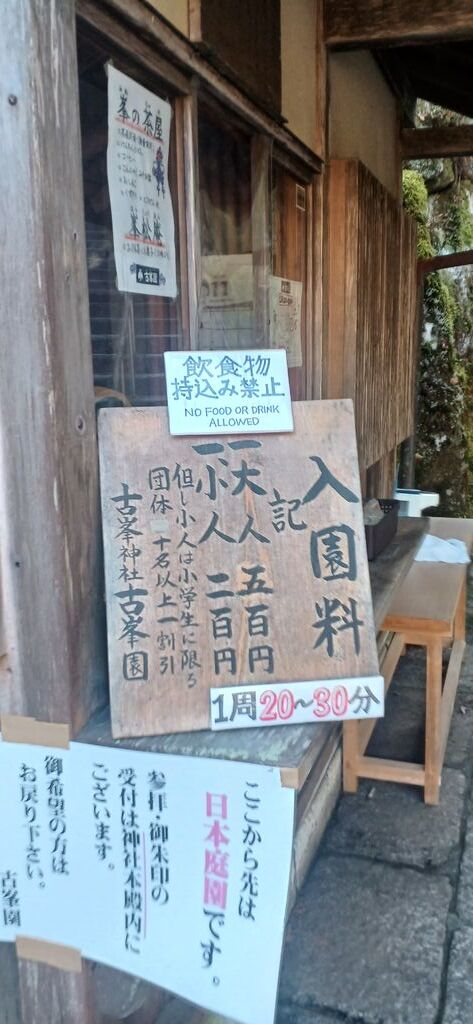 峯の茶屋
峯松庵
古峯園
飲食物
持込み禁止
NO FOOD OR DRINK
ALLOWED
入園料
記
一大人 五百円
一小人 二百円
但し小人は小学生に限る
団体 二十名以上一割引
古峯神社古峯園
1周20~30分
ここから先は
日本庭園です。
参拝・御朱印の
受付は神社本殿内に
ございます。
御希望の方は
お戻り下さい。
古峯園